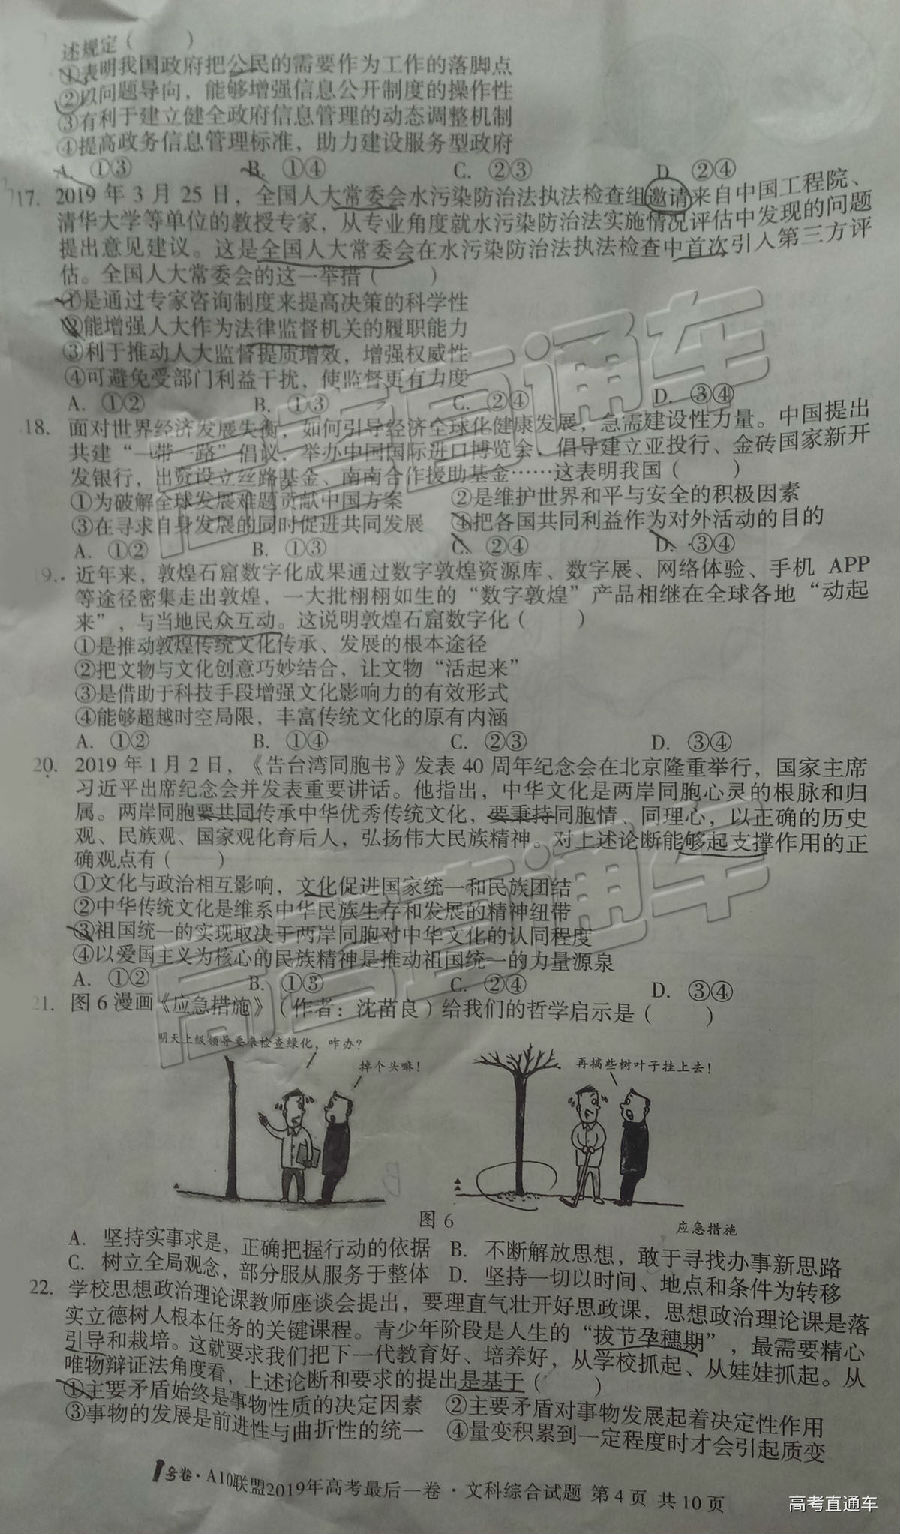 述规定（　　）
①表明我国政府把公民的需要作为工作的落脚点
②以问题导向，能够增强信息公开制度的操作性
③有利于建立健全政府信息管理的动态调整机制
④提高政务信息管理标准，助力建设服务型政府
A. ①③ B. ①④ C. ②③ D. ②④
17. 2019年3月25日，全国人大常委会水污染防治法执法检查组邀请来自中国工程院、
清华大学等单位的教授专家，从专业角度就水污染防治法实施情况评估中发现的问题
提出意见建议。这是全国人大常委会在水污染防治法执法检查中首次引入第三方评
估。全国人大常委会的这一举措（　　）
①是通过专家咨询制度来提高决策的科学性
②能增强人大作为法律监督机关的履职能力
③利于推动人大监督提质增效，增强权威性
④可避免受部门利益干扰，使监督更有力度
A. ①② B. ①③ C. ②④ D. ③④
18. 面对世界经济发展失衡，如何引导经济全球化健康发展，急需建设性力量。中国提出
共建“一带一路”倡议、举办中国国际进口博览会、倡导建立亚投行、金砖国家新开
发银行，出资设立丝路基金、南南合作援助基金……这表明我国（　　）
①为破解全球发展难题贡献中国方案 ②是维护世界和平与安全的积极因素
③在寻求自身发展的同时促进共同发展 ④把各国共同利益作为对外活动的目的
A. ①② B. ①③ C. ②④ D. ③④
9. 近年来，敦煌石窟数字化成果通过数字敦煌资源库、数字展、网络体验、手机APP
等途径密集走出敦煌，一大批栩栩如生的“数字敦煌”产品相继在全球各地“动起
来”，与当地民众互动。这说明敦煌石窟数字化（　　）
①是推动敦煌传统文化传承、发展的根本途径
②把文物与文化创意巧妙结合，让文物“活起来”
③是借助于科技手段增强文化影响力的有效形式
④能够超越时空局限，丰富传统文化的原有内涵
A. ①② B. ①④ C. ②③ D. ③④
20. 2019年1月2日，《告台湾同胞书》发表40周年纪念会在北京隆重举行，国家主席
习近平出席纪念会并发表重要讲话。他指出，中华文化是两岸同胞心灵的根脉和归
属。两岸同胞要共同传承中华优秀传统文化，要秉持同胞情、同理心，以正确的历史
观、民族观、国家观化育后人，弘扬伟大民族精神。对上述论断能够起支撑作用的正
确观点有（　　）
①文化与政治相互影响，文化促进国家统一和民族团结
②中华传统文化是维系中华民族生存和发展的精神纽带
③祖国统一的实现取决于两岸同胞对中华文化的认同程度
④以爱国主义为核心的民族精神是推动祖国统一的力量源泉
A. ①② B. ①③ C. ②④ D. ③④
21. 图6漫画《应急措施》（作者：沈苗良）给我们的哲学启示是（　　）
明天上级领导要来检查绿化，咋办？
掉个头嘛！
再搞些树叶子挂上去！
图6
应急措施
A. 坚持实事求是，正确把握行动的依据 B. 不断解放思想，敢于寻找办事新思路
C. 树立全局观念，部分服从服务于整体 D. 坚持一切以时间、地点和条件为转移
22. 学校思想政治理论课教师座谈会提出，要理直气壮开好思政课，思想政治理论课是落
实立德树人根本任务的关键课程。青少年阶段是人生的“拔节孕穗期”，最需要精心
引导和栽培。这就要求我们把下一代教育好、培养好，从学校抓起、从娃娃抓起。从
唯物辩证法角度看，上述论断和要求的提出是基于（　　）
①主要矛盾始终是事物性质的决定因素 ②主要矛盾对事物发展起着决定性作用
③事物的发展是前进性与曲折性的统一 ④量变积累到一定程度时才会引起质变
1号卷·A10联盟2019年高考最后一卷·文科综合试题 第4页 共10页
高考直通车
高考直通车
高考直通车